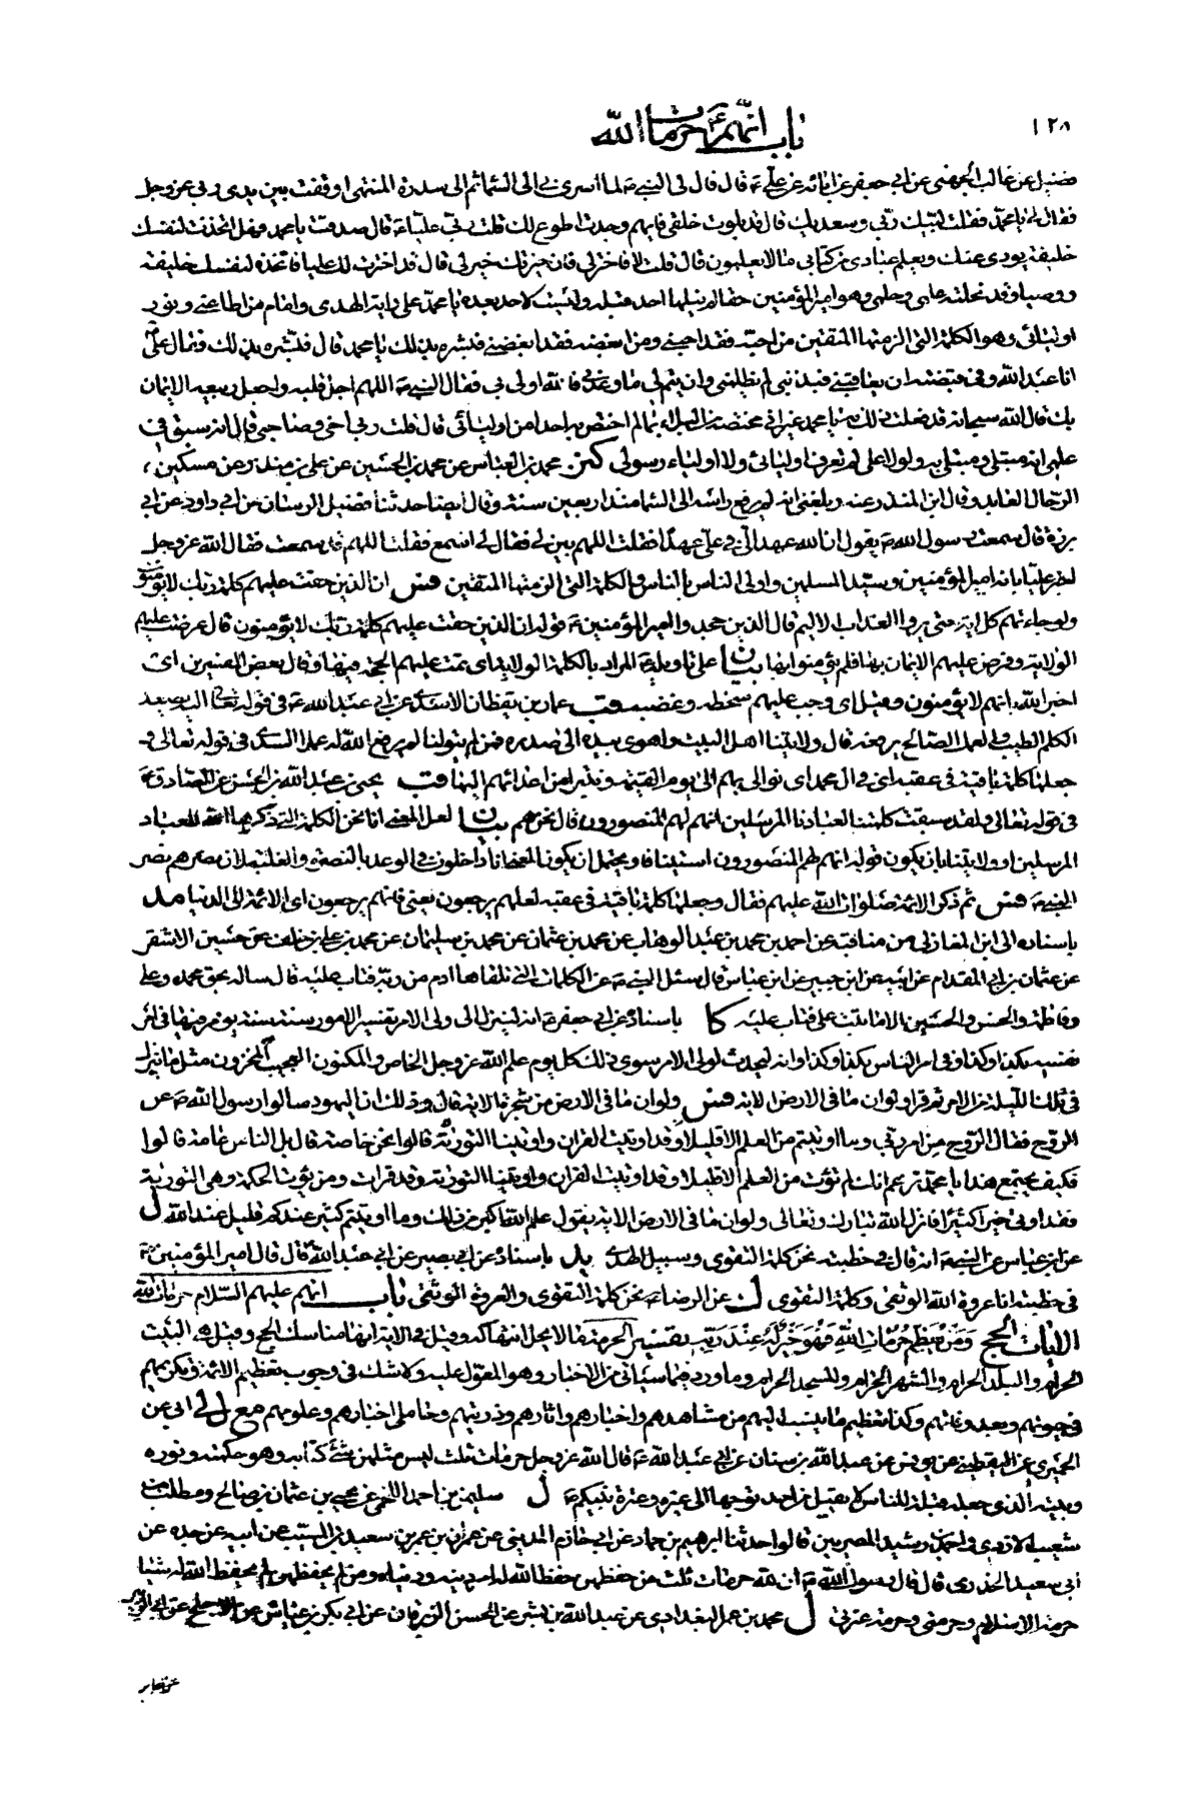 ١٢٨
باب انهم ع حرمات الله
فضيل عن غالب الجهني عن ابي جعفر عن ابائه عن علي ع قال قال لي النبي ص لما اسري بي الى السماء ثم الى سدرة المنتهى اوقفت بين يدي ربي عز وجل
فقال لي يا محمد فقلت لبيك ربي وسعديك قال قد بلوت خلقي فايهم وجدت اطوع لك قلت ربي عليا ع قال صدقت يا محمد فهل اتخذت لنفسك
خليفة يودي عنك ويعلم عبادي من كتابي ما لا يعلمون قال قلت لا فاختر لي فان خيرتك خير لي قال قد اخترت لك عليا فاتخذه لنفسك خليفة
ووصيا وقد نحلته علمي وحلمي وهو امير المؤمنين حقا لم ينلها احد قبله وليست لاحد بعده يا محمد علي راية الهدى وامام من اطاعني ونور
اوليائي وهو الكلمة التي الزمتها المتقين من احبه فقد احبني ومن ابغضه فقد ابغضني فبشره بذلك يا محمد قال فبشره بذلك فقال علي ع
انا عبد الله وفي قبضته ان يعاقبني فبذنبي لم يظلمني وان يتم لي ما وعدني فالله اولى بي فقال النبي ص اللهم اجل قلبه واجعل ربيعه الايمان
بك قال الله سبحانه قد فعلت ذلك به يا محمد غير اني مختصه من البلاء بما لم اختص به احدا من اوليائي قال قلت ربي اخي وصاحبي قال انه سبق في
علمي انه مبتلى ومبتلى به ولولا علي لم تعرف اوليائي ولا اولياء رسولي كنز محمد بن العباس عن محمد بن الحسين عن علي بن منذر عن مسكين
الرحال العابد وقال ابن المنذر عنه وبلغني انه لم يرفع راسه الى السماء منذ اربعين سنة وقال ايضا حدثنا فضيل الرسان عن ابي داود عن ابي
برزة قال سمعت رسول الله ص يقول ان الله عهد الي في علي عهدا فقلت اللهم بين لي فقال لي اسمع فقلت اللهم قد سمعت فقال الله عز وجل
اخبر عليا بانه امير المؤمنين وسيد المسلمين واولى الناس بالناس والكلمة التي الزمتها المتقين فس ان الذين حقت عليهم كلمة ربك لا يؤمنون
ولو جاءتهم كل اية حتى يروا العذاب الاليم قال الذين جحدوا امير المؤمنين ع قوله ان الذين حقت عليهم كلمة ربك لا يؤمنون قال عرضت عليهم
الولاية وفرض عليهم الايمان بها فلم يؤمنوا بها بيان على تاويله المراد بالكلمة الولاية اي تمت عليهم الحجة فيها وقال بعض المفسرين اي
اخبر الله انهم لا يؤمنون وقيل اي وجب عليهم سخطه وغضبه قب عمار بن يقظان الاسدي عن ابي عبد الله ع في قوله تعالى اليه يصعد
الكلم الطيب والعمل الصالح يرفعه قال ولايتنا اهل البيت واهوى بيده الى صدره فمن لم يتولنا لم يرفع الله له عملا السدي في قوله تعالى و
جعلها كلمة باقية في عقبه اي في ال محمد اي نوالي بهم الى يوم القيمة ونتبرا من اعدائهم اليها قب يحيى بن عبد الله بن الحسن عن الصادق ع
في قوله تعالى ولقد سبقت كلمتنا لعبادنا المرسلين انهم لهم المنصورون قال نحن هم بيان لعل المعنى انا نحن الكلمة التي ذكرها الله للعباد
المرسلين او ولايتنا بان يكون قوله انهم لهم المنصورون استينافا ويحتمل ان يكون المعنى انا داخلون في الوعد بالنصرة والغلبة لان نصرهم نصر
النبي ص فس ثم ذكر الائمة صلوات الله عليهم فقال وجعلها كلمة باقية في عقبه لعلهم يرجعون يعني فانهم يرجعون اي الائمة الى الدنيا مد
باسناده الى ابن المغازلي من مناقبه عن احمد بن محمد بن عبد الوهاب عن محمد بن عثمان عن محمد بن سليمان عن محمد بن علي بن خلف عن حسين الاشقر
عن عثمان بن ابي المقدام عن ابيه عن ابن جبير عن ابن عباس قال سئل النبي ص عن الكلمات التي تلقاها ادم من ربه فتاب عليه قال ساله بحق محمد وعلي
وفاطمة والحسن والحسين الا ما تبت علي فتاب عليه كا باسناده عن ابي جعفر ع انه لينزل الى ولي الامر تفسير الامور سنة سنة يومر فيها في امر
نفسه بكذا وكذا وفي امر الناس بكذا وكذا وانه ليحدث لولي الامر سوى ذلك كل يوم علم الله عز وجل الخاص والمكنون العجيب المخزون مثل ما ينزل
في تلك الليلة من الامر ثم قرا ولو ان ما في الارض الاية فس ولو ان ما في الارض من شجرة الاية قال وذلك ان اليهود سالوا رسول الله ص عن
الروح فقال الروح من امر ربي وما اوتيتم من العلم الا قليلا وقد اوتيت القران واوتينا التورية قالوا نحن خاصة قال بل الناس عامة قالوا
فكيف يجتمع هذا يا محمد تزعم انك لم تؤت من العلم الا قليلا وقد اوتيت القران واوتينا التورية وقد قرات ومن يؤت الحكمة وهي التورية
فقد اوتي خيرا كثيرا فانزل الله تبارك وتعالى ولو ان ما في الارض الاية يقول علم الله اكبر من ذلك وما اوتيتم كثير عندكم قليل عند الله ل
عن ابن عباس عن النبي ص انه قال في خطبته نحن كلمة التقوى وسبيل الهدى يد باسناده عن ابي بصير عن ابي عبد الله ع قال قال امير المؤمنين ع
في خطبته انا عروة الله الوثقى وكلمة التقوى ك عن الرضا ع نحن كلمة التقوى والعروة الوثقى باب انهم عليهم السلام حرمات الله
الايات الحج وَمَنْ يُعَظِّمْ حُرُمَاتِ اللهِ فَهُوَ خَيْرٌ لَهُ عِنْدَ رَبِّهِ تفسير الحرمة ما لا يحل انتهاكه وقيل في الاية انها مناسك الحج وقيل هي البيت
الحرام والبلد الحرام والشهر الحرام والمسجد الحرام وما ورد فيما سياتي من الاخبار وهو المعول عليه ولا شك في وجوب تعظيم الائمة وتكريمهم
في حيوتهم وبعد وفاتهم وكذا تعظيم ما ينسب اليهم من مشاهدهم واخبارهم واثارهم وذريتهم وحاملي اخبارهم وعلومهم مع ل لي ابي عن
الحميري عن اليقطيني عن يونس عن عبد الله بن سنان عن ابي عبد الله ع قال الله عز وجل حرمات ثلث ليس مثلهن شئ كتابه وهو حكمته ونوره
وبيته الذي جعله قبلة للناس لا يقبل من احد توجها الى غيره وعترة نبيكم ص ل سليمن بن احمد اللخمي عن يحيى بن عثمان بن صالح ومطلب بن
شعيب الازدي واحمد بن رشيد المصريين قالوا حدثنا ابرهيم بن حماد عن ابي حازم المديني عن عمران بن عمر بن سعيد بن المسيب عن ابيه عن جده عن
ابي سعيد الخدري قال قال رسول الله ص ان لله حرمات ثلث من حفظهن حفظ الله له امر دينه ودنياه ومن لم يحفظهن لم يحفظ الله له شيئا
حرمة الاسلام وحرمتي وحرمة عترتي ل محمد بن عمر البغدادي عن عبد الله بن بشر عن الحسن الزبرقان عن ابي بكر بن عياش عن الاجلح عن ابي الزبير
عن جابر